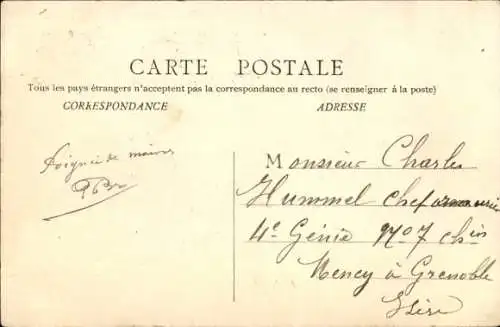 CARTE POSTALE
Tous les pays étrangers n'acceptent pas la correspondance au recto (se renseigner à la poste)
CORRESPONDANCE
ADRESSE
Poignée de mains
Monsieur Charles
Hummel chef
4e Génie 9707
à Grenoble
Isère